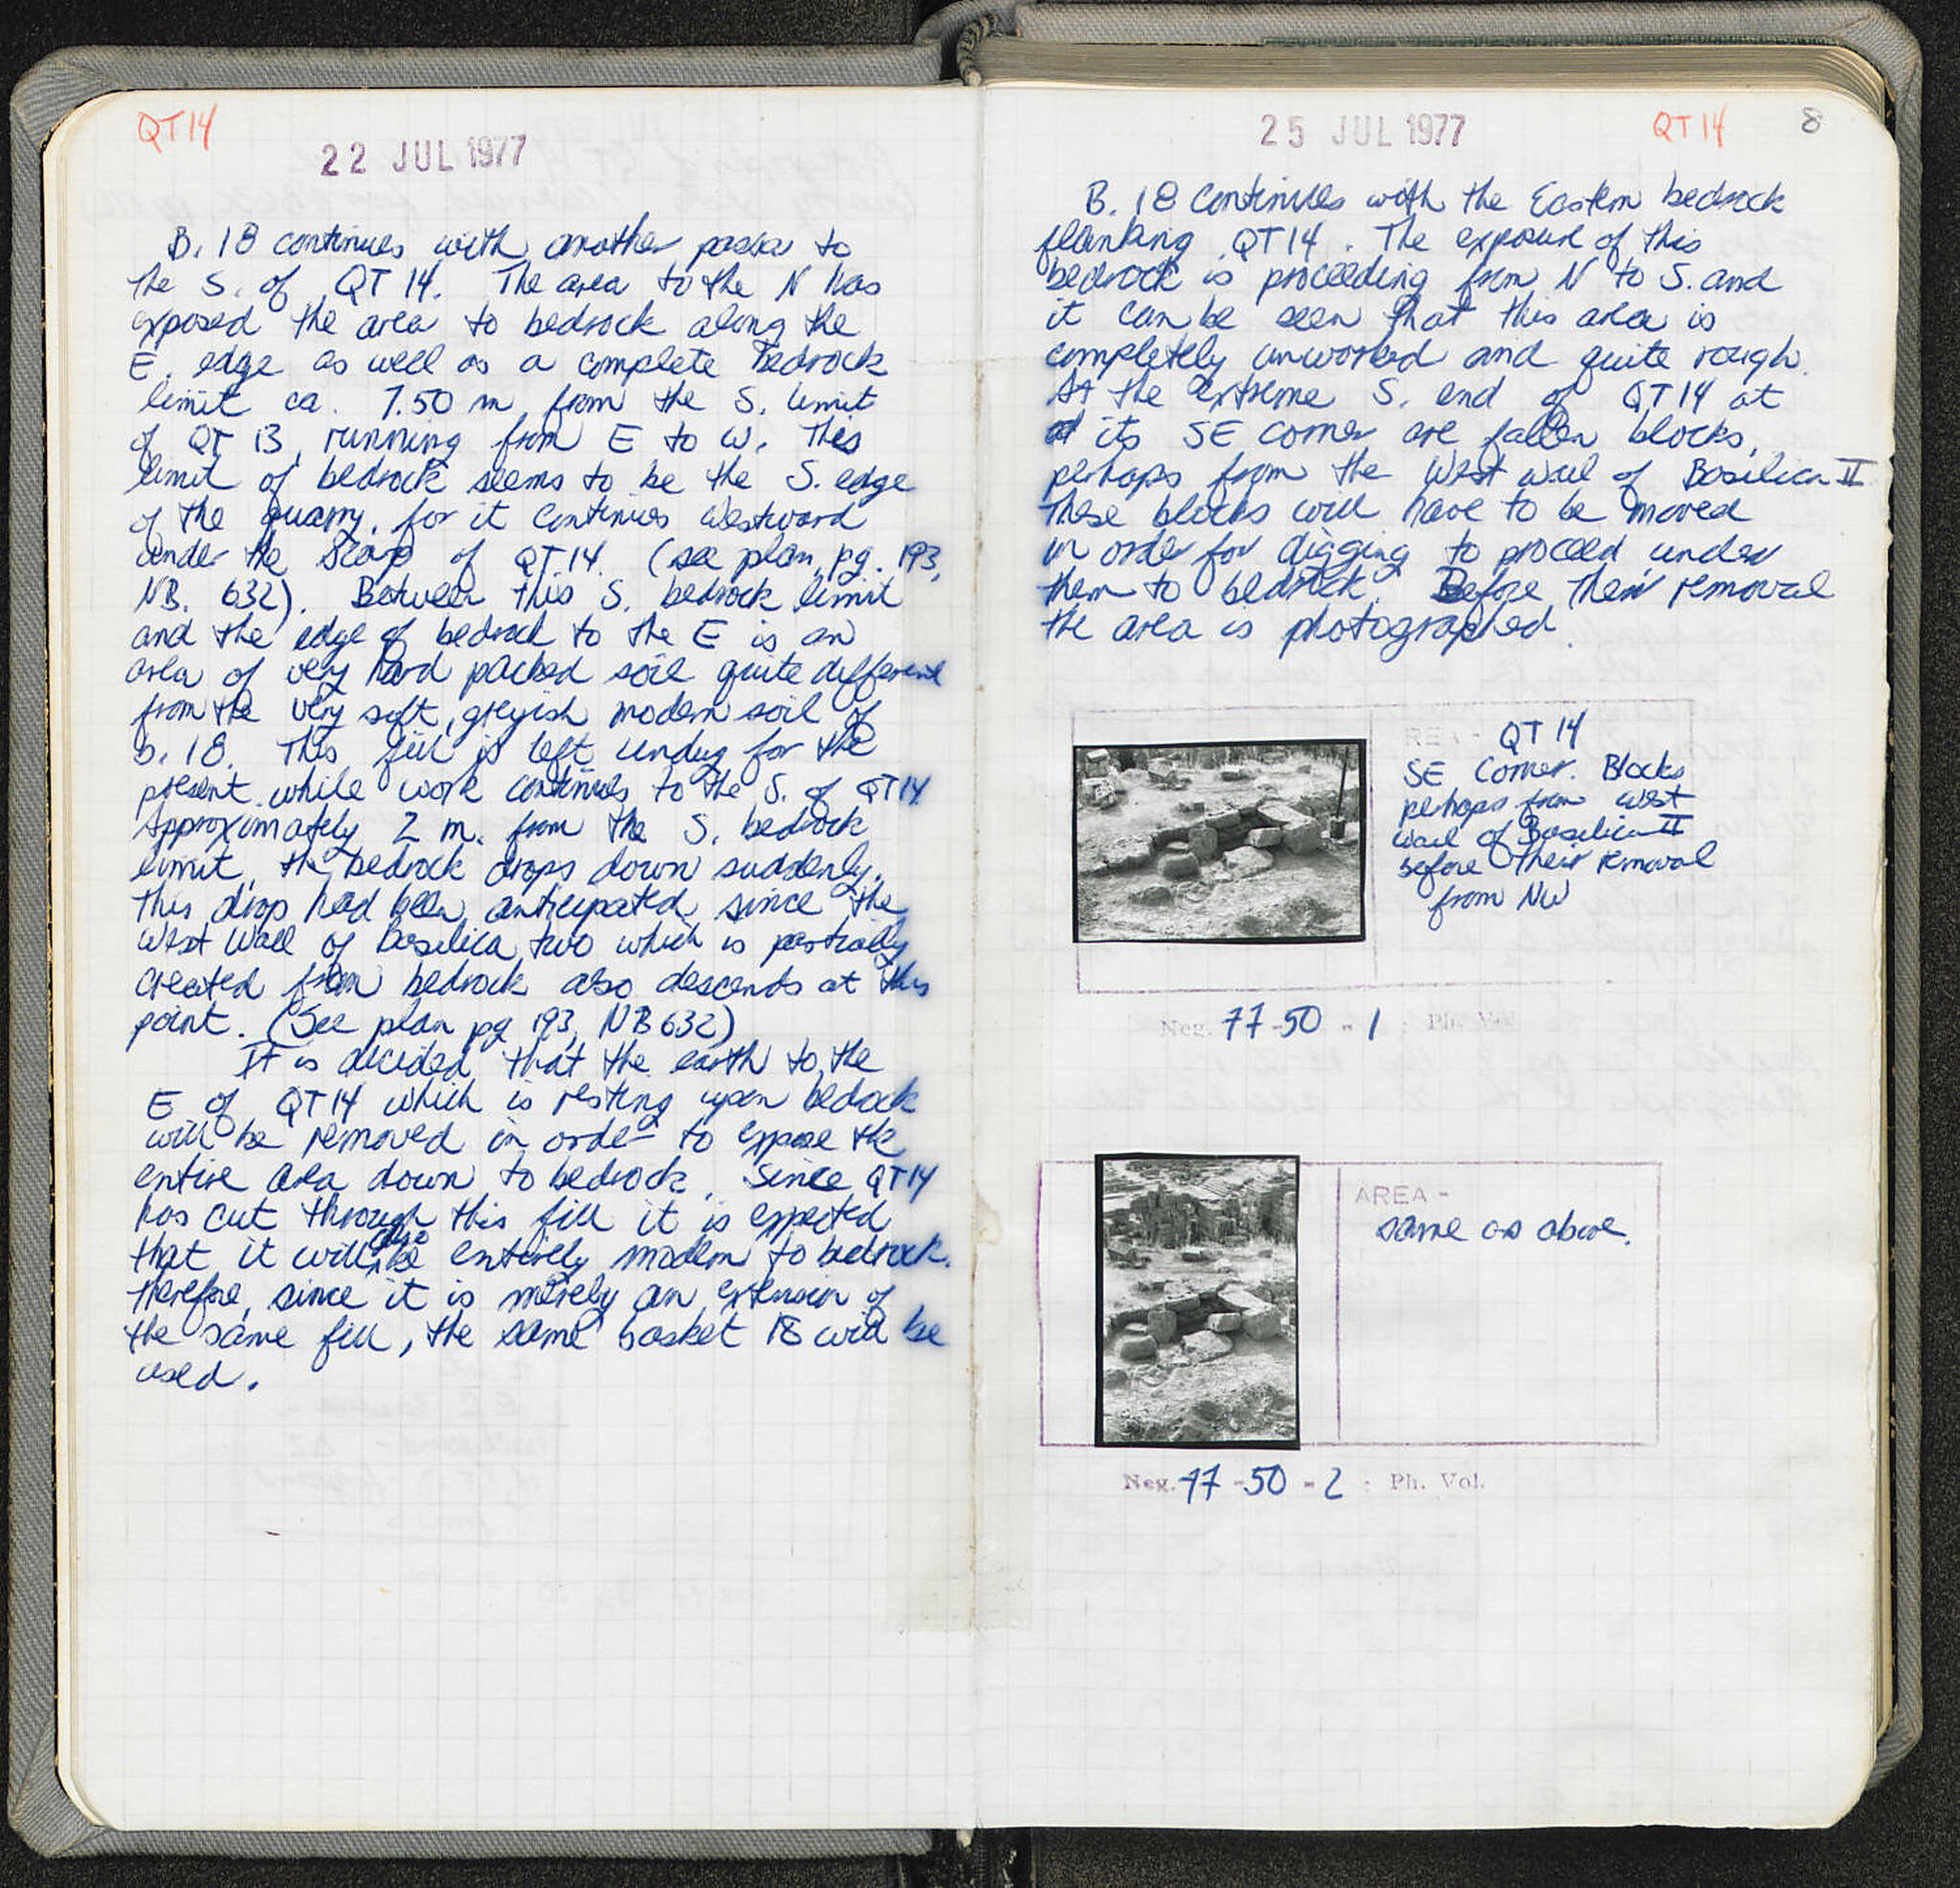 QT 14
22 JUL 1977
B. 18 continues with another passa to
the S. of QT 14. The area to the N has
exposed the area to bedrock along the
E. edge as well as a complete bedrock
limit ca. 7.50 m from the S. limit
of QT 13, running from E to W. This
limit of bedrock seems to be the S. edge
of the quarry, for it continues westward
under the scarp of QT 14. (see plan, pg. 193,
NB. 632). Between this S. bedrock limit
and the edge of bedrock to the E is an
area of very hard packed soil quite different
from the very soft, greyish modern soil of
B. 18. This fill is left undug for the
present while work continues to the S. of QT 14
Approximately 2 m. from the S. bedrock
limit, the bedrock drops down suddenly.
This drop had been anticipated, since the
West Wall of Basilica two which is partially
created from bedrock also descends at this
point. (See plan pg 193, NB 632)
It is decided that the earth to the
E of QT 14 which is resting upon bedrock
will be removed in order to expose the
entire area down to bedrock. Since QT 14
has cut through this fill it is expected
that it will also be entirely modern to bedrock.
Therefore, since it is merely an extension of
the same fill, the same basket 18 will be
used.
25 JUL 1977
QT 14
8
B. 18 continues with the Eastern bedrock
flanking QT 14. The exposure of this
bedrock is proceeding from N to S. and
it can be seen that this area is
completely unworked and quite rough.
At the extreme S. end of QT 14 at
its SE corner are fallen blocks,
perhaps from the West Wall of Basilica II
These blocks will have to be moved
in order for digging to proceed under
them to bedrock. Before their removal
the area is photographed.
REA - QT 14
SE Corner. Blocks
perhaps from West
Wall of Basilica II
before their removal
from NW
Neg. 77-50 - 1 : Ph. Vol.
AREA -
same as above.
Neg. 77-50 - 2 : Ph. Vol.